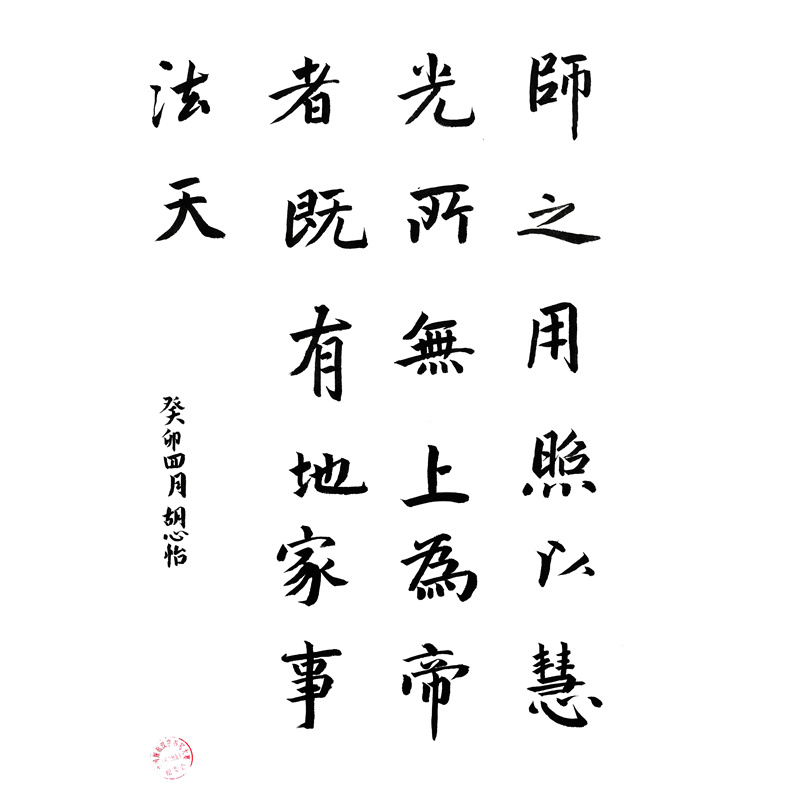 師之用照以慧
光所無上為帝
者既有地家事
法天
癸卯四月胡心怡